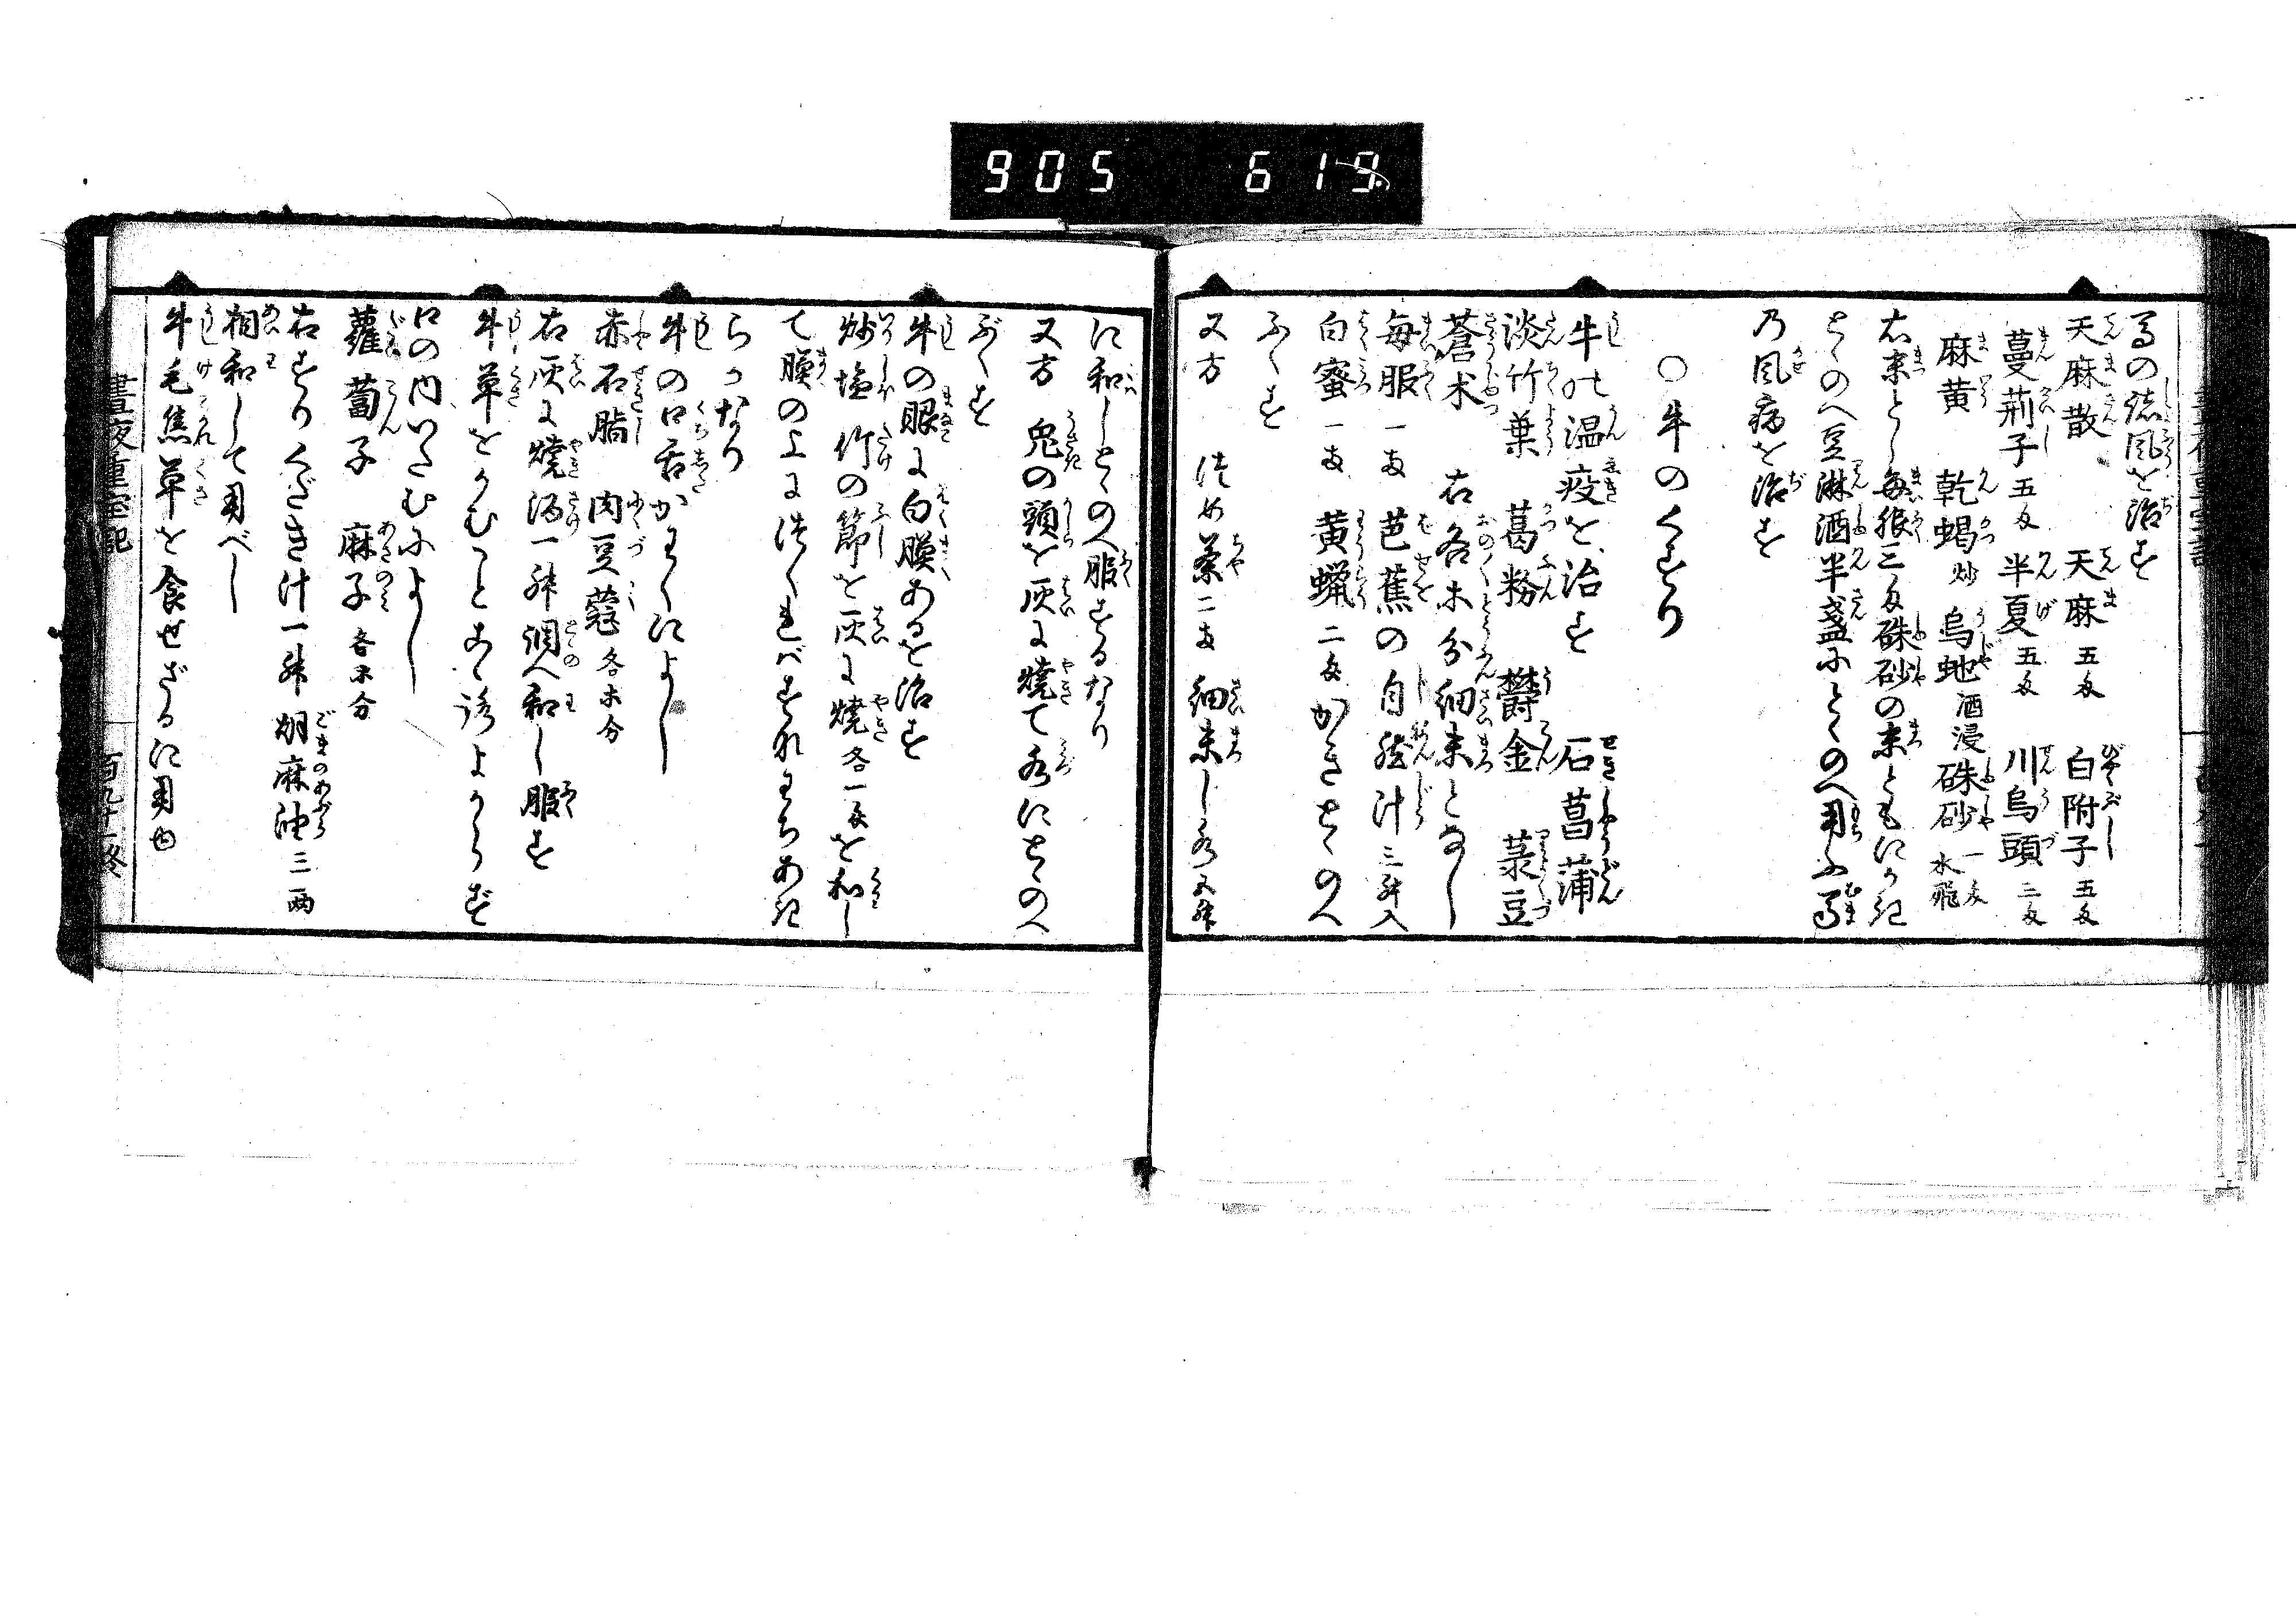 905 619
馬の諸風を治す
天麻散 天麻五匁 白附子五匁
蔓荊子五匁 半夏五匁 川烏頭二匁
麻黄 乾蝎炒 烏虵酒浸 硃砂一匁水飛
右末とし毎服三匁硃砂の末ともにうけ
とゝのへ豆淋酒半盞にとゝのへ用ふ馬
乃風病を治す
○牛のくすり
牛の温疫を治す 石菖蒲
淡竹葉 葛粉 欝金 菉豆
蒼术 右各等分細末となし
毎服一両芭蕉の自然汁三升入
白蜜一両 黄蝋二匁かきとゝのへ
ふくす
又方 茶二両 細末し水五升
に和しとゝのへ服するなり
又方 兎の頭を灰に焼て水にとゝのへ
ぶくす
牛の眼に白膜あるを治す
炒塩竹の節を灰に焼各一匁を和し
て膜の上につくればすなわちあけ
らかなり
牛の口舌かわくによし
赤石脂 肉豆蔲各等分
右灰に焼酒一升調へ和し服す
牛草をかむことあく Leave
口の内いたむによし
蘿蔔子 麻子各等分
右すりくだき汁一升 胡麻油三両
相和して用べし
牛毛焦草を食せざるに用也
晝夜重宝記
百九十一終